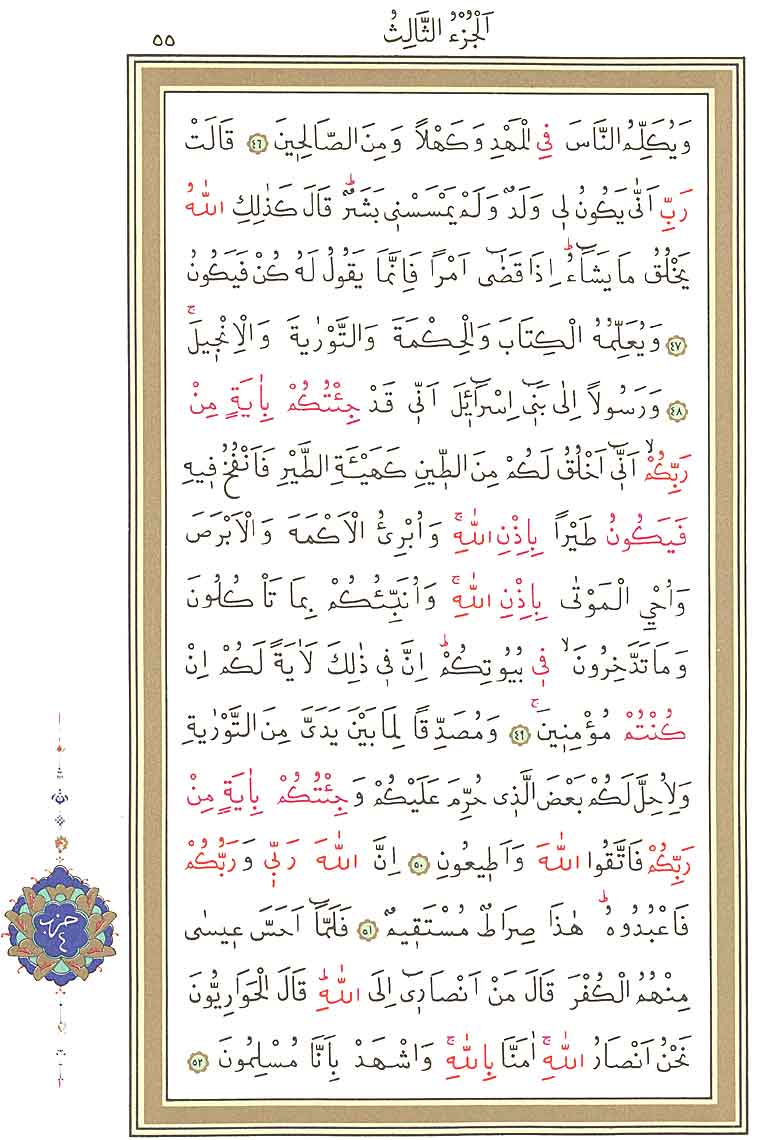 اَلْجُزْءُ الثَّالِثُ ٥٥
وَيُكَلِّمُ النَّاسَ فِي الْمَهْدِ وَكَهْلاً وَمِنَ الصَّالِح۪ينَ ﴿٤٦﴾ قَالَتْ
رَبِّ اَنّٰى يَكُونُ ل۪ي وَلَدٌ وَلَمْ يَمْسَسْن۪ي بَشَرٌۜ قَالَ كَذٰلِكِ اللّٰهُ
يَخْلُقُ مَا يَشَٓاءُۜ اِذَا قَضٰٓى اَمْراً فَاِنَّمَا يَقُولُ لَهُ كُنْ فَيَكُونُ
﴿٤٧﴾ وَيُعَلِّمُهُ الْكِتَابَ وَالْحِكْمَةَ وَالتَّوْرٰيةَ وَالْاِنْج۪يلَۚ
﴿٤٨﴾ وَرَسُولاً اِلٰى بَن۪ٓي اِسْرَٓائ۪لَ اَنّ۪ي قَدْ جِئْتُكُمْ بِاٰيَةٍ مِنْ
رَبِّكُمْۙ اَنّ۪ٓي اَخْلُقُ لَكُمْ مِنَ الطّ۪ينِ كَهَيْـَٔةِ الطَّيْرِ فَاَنْفُخُ ف۪يهِ
فَيَكُونُ طَيْراً بِاِذْنِ اللّٰهِۚ وَاُبْرِئُ الْاَكْمَهَ وَالْاَبْرَصَ
وَاُحْيِ الْمَوْتٰى بِاِذْنِ اللّٰهِۚ وَاُنَبِّئُكُمْ بِمَا تَاْكُلُونَ
وَمَا تَدَّخِرُونَۙ ف۪ي بُيُوتِكُمْۜ اِنَّ ف۪ي ذٰلِكَ لَاٰيَةً لَكُمْ اِنْ
كُنْتُمْ مُؤْمِن۪ينَۚ ﴿٤٩﴾ وَمُصَدِّقاً لِمَا بَيْنَ يَدَيَّ مِنَ التَّوْرٰيةِ
وَلِاُحِلَّ لَكُمْ بَعْضَ الَّذ۪ي حُرِّمَ عَلَيْكُمْ وَجِئْتُكُمْ بِاٰيَةٍ مِنْ
رَبِّكُمْ فَاتَّقُوا اللّٰهَ وَاَط۪يعُونِ ﴿٥٠﴾ اِنَّ اللّٰهَ رَبّ۪ي وَرَبُّكُمْ
فَاعْبُدُوهُۜ هٰذَا صِرَاطٌ مُسْتَق۪يمٌ ﴿٥١﴾ فَلَمَّٓا اَحَسَّ ع۪يسٰى
مِنْهُمُ الْكُفْرَ قَالَ مَنْ اَنْصَار۪ٓي اِلَى اللّٰهِۜ قَالَ الْحَوَارِيُّونَ
نَحْنُ اَنْصَارُ اللّٰهِۚ اٰمَنَّا بِاللّٰهِۚ وَاشْهَدْ بِاَنَّا مُسْلِمُونَ ﴿٥٢﴾
حزب ٤